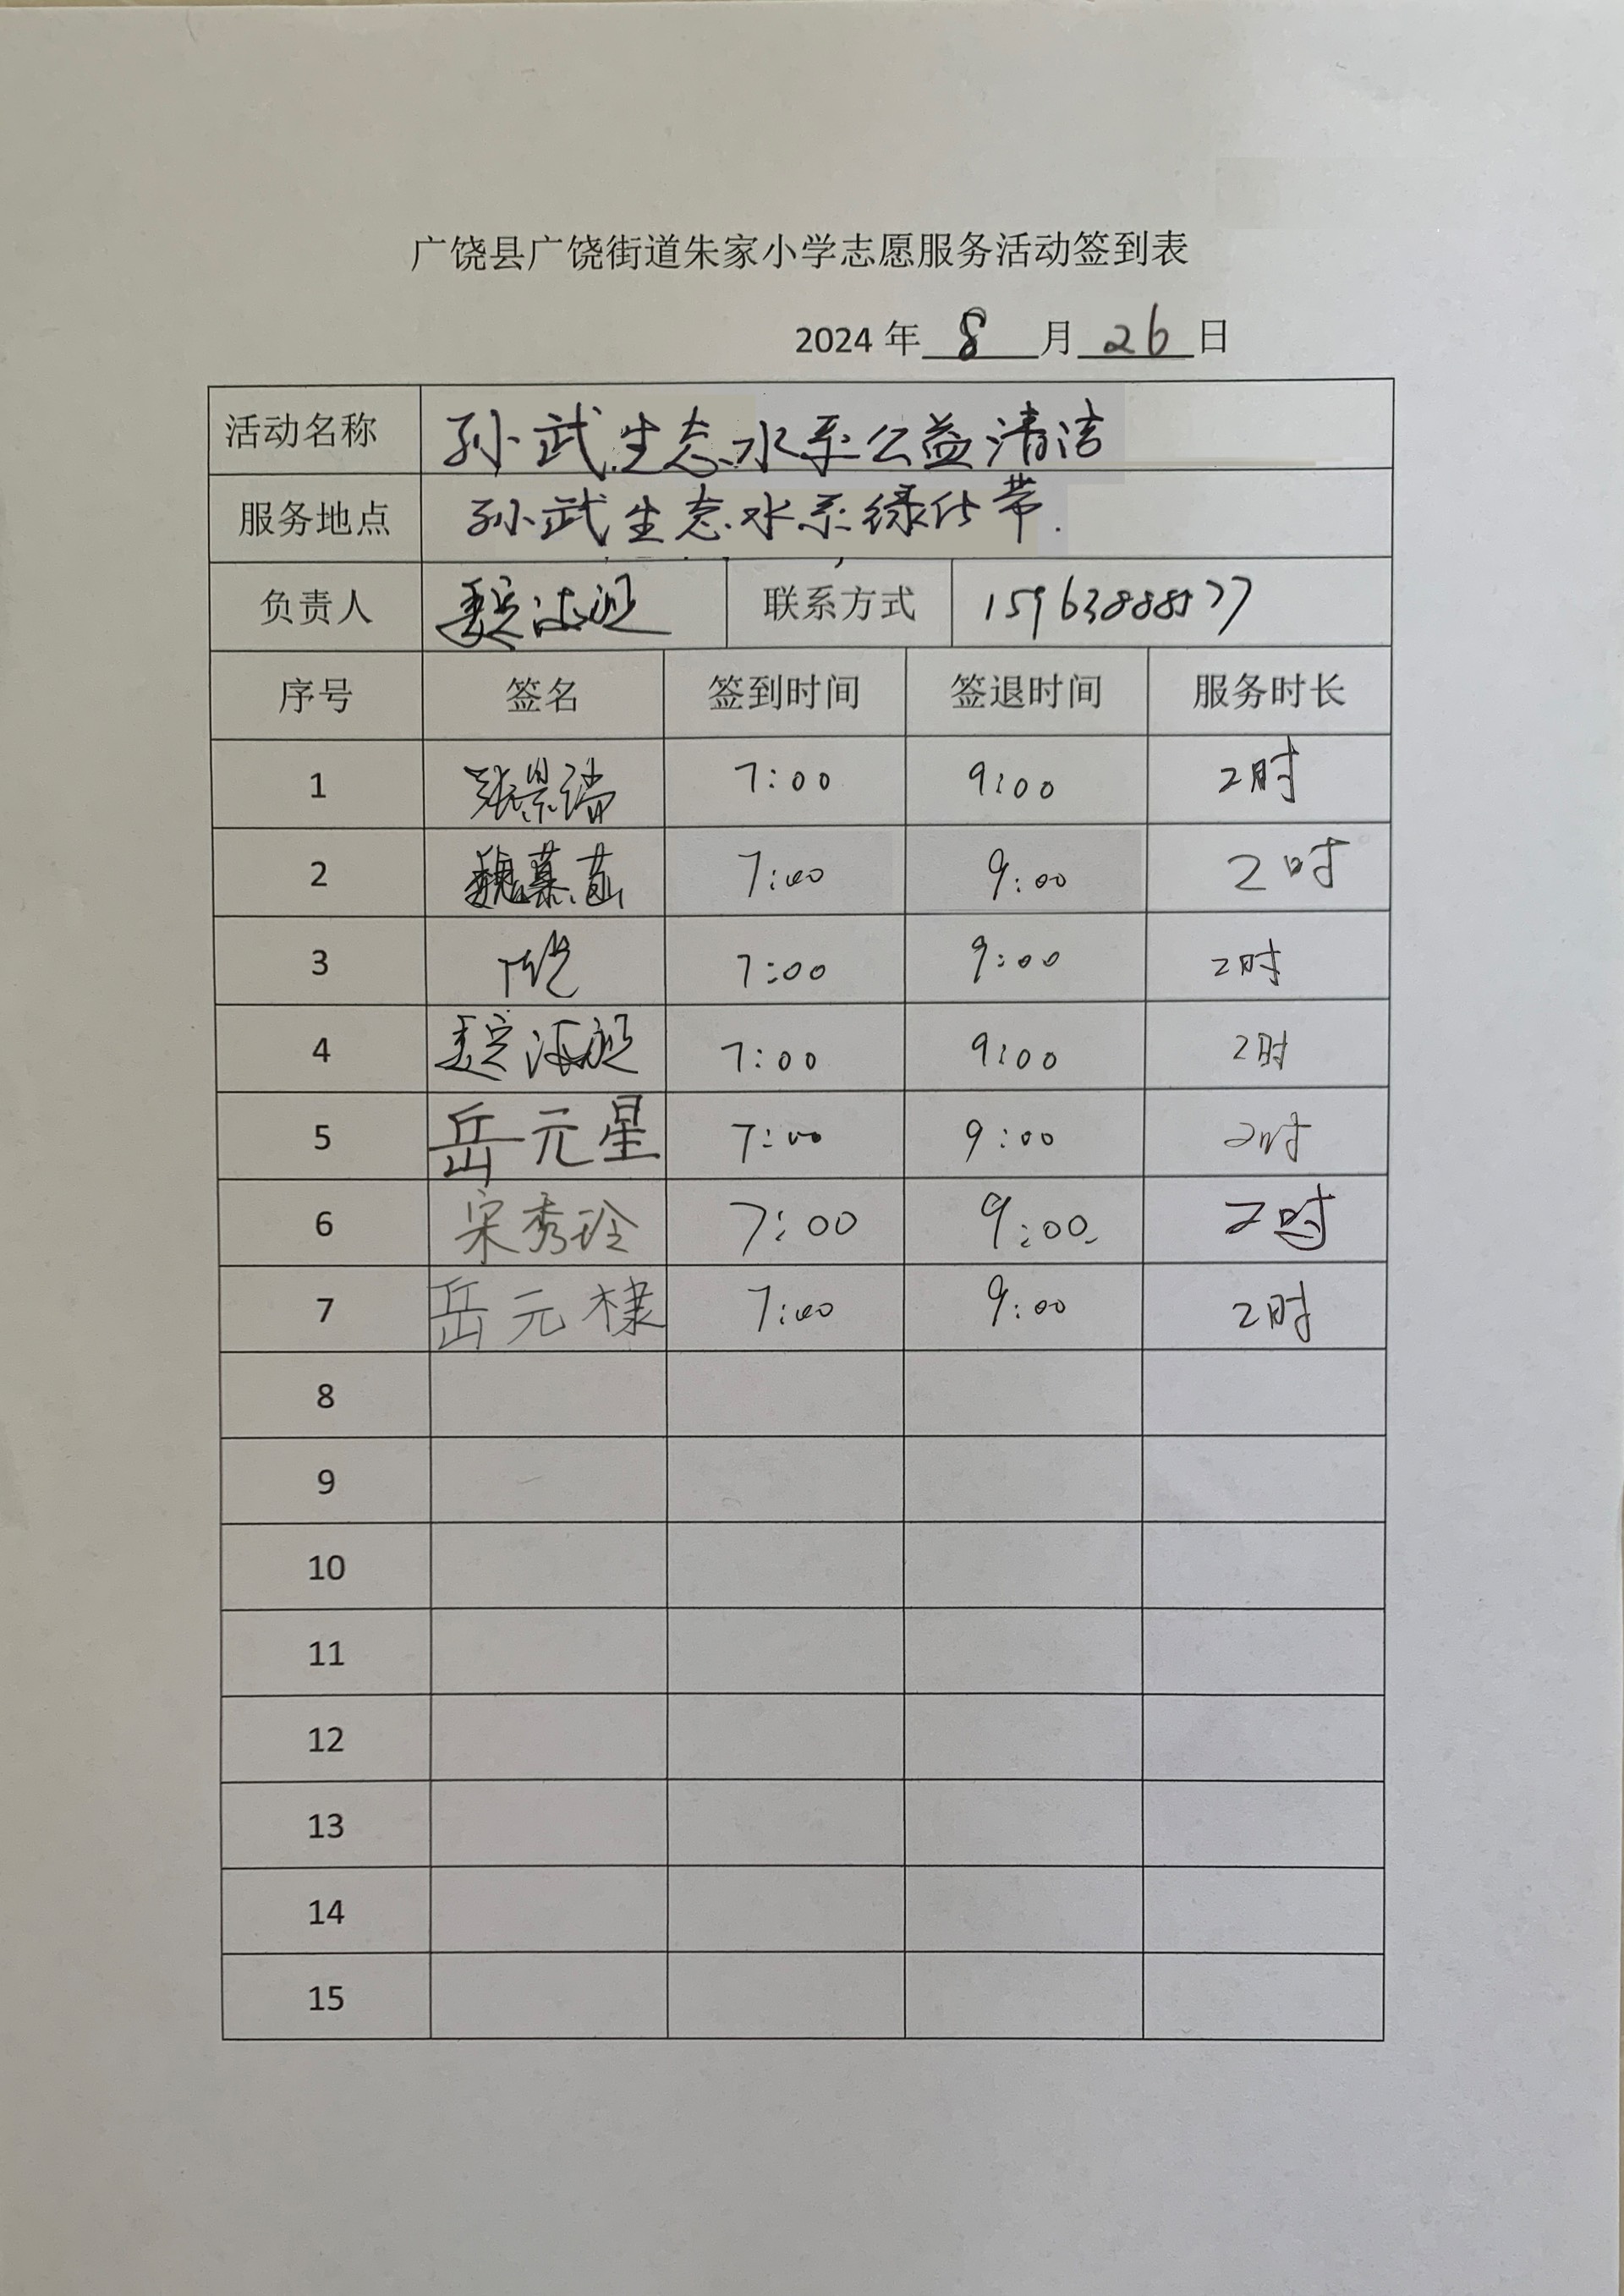 广饶县广饶街道朱家小学志愿服务活动签到表
2024 年 8 月 26 日
活动名称 孙武生态水系公益清洁
服务地点 孙武生态水系绿化带.
负责人 联系方式 15963888577
序号 签名 签到时间 签退时间 服务时长
1 张景瑞 7:00 9:00 2时
2 7:00 9:00 2时
3 7:00 9:00 2时
4 7:00 9:00 2时
5 岳元星 7:00 9:00 2时
6 宋秀玲 7:00 9:00 2时
7 岳元棣 7:00 9:00 2时
8
9
10
11
12
13
14
15